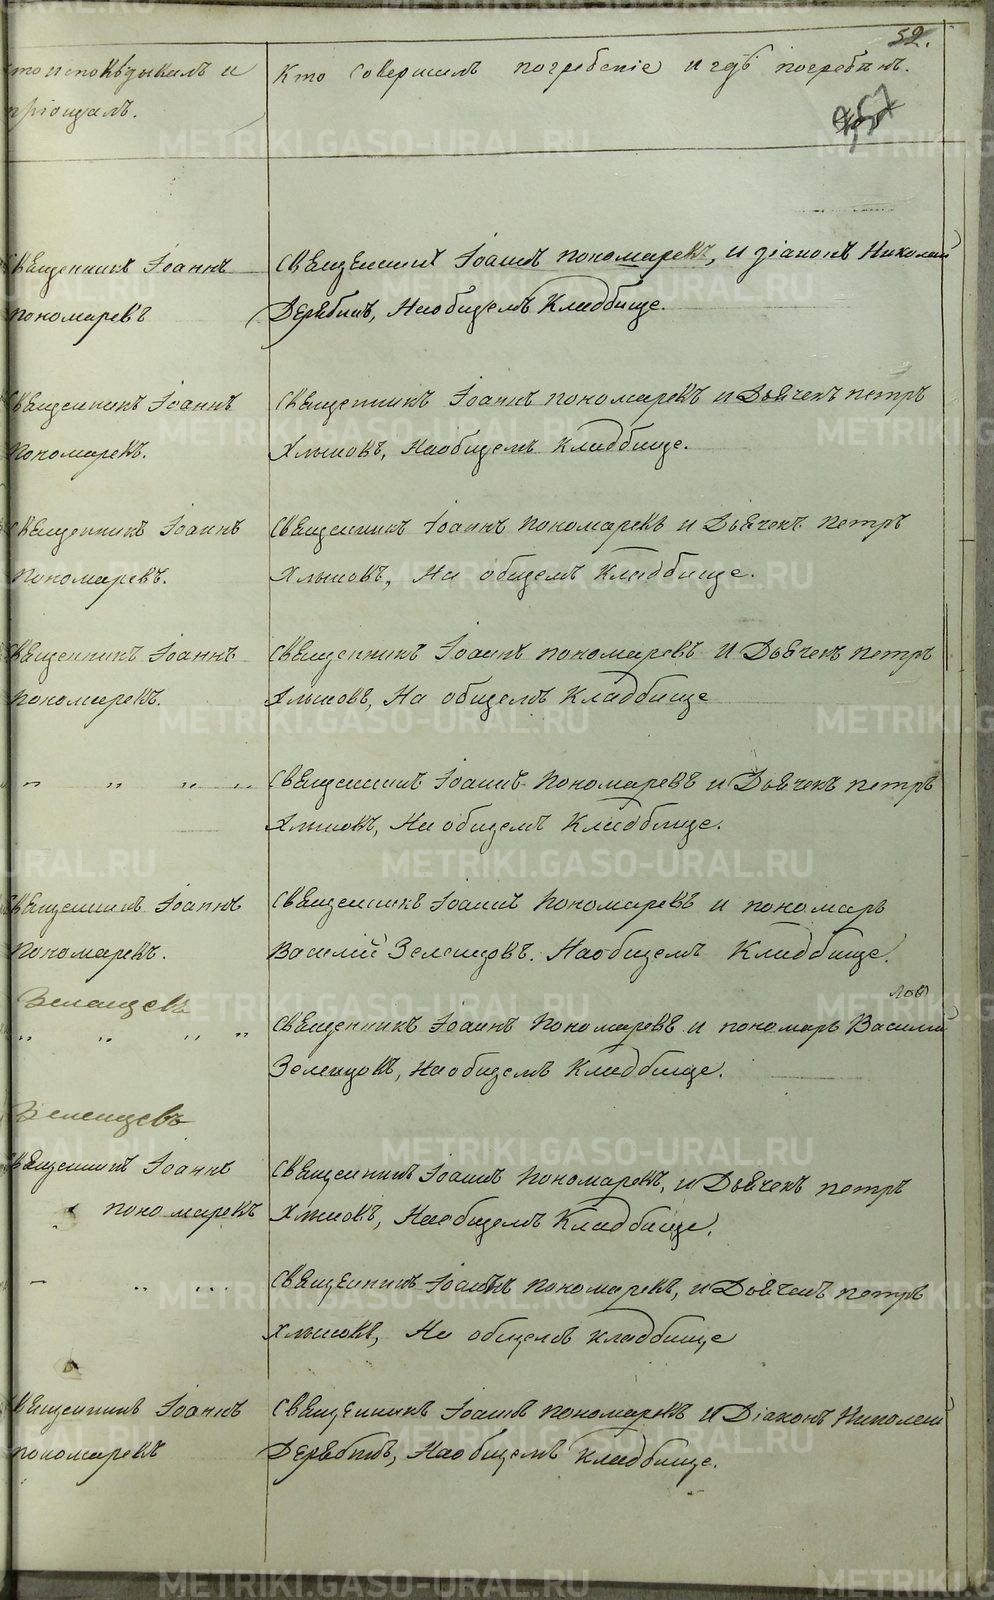 52.
кто исповѣдывалъ и
пріощалъ.
Кто совершилъ погребеніе и гдѣ погребѣнъ.
Священникъ Іоаннъ
Пономаревъ
Священникъ Іоаннъ Пономаревъ, и діаконъ Николай
Дерябинъ, На общемъ Кладбище.
Священникъ Іоаннъ
Пономаревъ.
Священникъ Іоаннъ Пономаревъ и Дьячекъ Петръ
Хлыновъ, На общемъ Кладбище.
Священникъ Іоаннъ
Пономаревъ.
Священникъ Іоаннъ Пономаревъ и Дьячекъ Петръ
Хлыновъ, На общемъ Кладбище.
Священникъ Іоаннъ
Пономаревъ.
Священникъ Іоаннъ Пономаревъ и Дьячекъ Петръ
Хлыновъ, На общемъ Кладбище
„ „ „ „
Священникъ Іоаннъ Пономаревъ и Дьячекъ Петръ
Хлыновъ, На общемъ Кладбище.
Священникъ Іоаннъ
Пономаревъ.
Священникъ Іоаннъ Пономаревъ и пономарь
Василій Зеленцовъ. На общемъ Кладбище.
Зеленцевъ
„ „ „ „
Священникъ Іоаннъ Пономаревъ и пономарь Василій
Зеленцовъ, На общемъ Кладбище.
Зеленцевъ
Священникъ Іоаннъ
Пономаревъ
Священникъ Іоаннъ Пономаревъ, и Дьячекъ Петръ
Хлыновъ, На общемъ Кладбище.
„ „ „
Священникъ Іоаннъ Пономаревъ, и Дьячекъ Петръ
Хлыновъ, На общемъ кладбище
Священникъ Іоаннъ
Пономаревъ
Священникъ Іоаннъ Пономаревъ и Діаконъ Николай
Дерябинъ, На общемъ кладбище.
METRIKI.GASO-URAL.RU